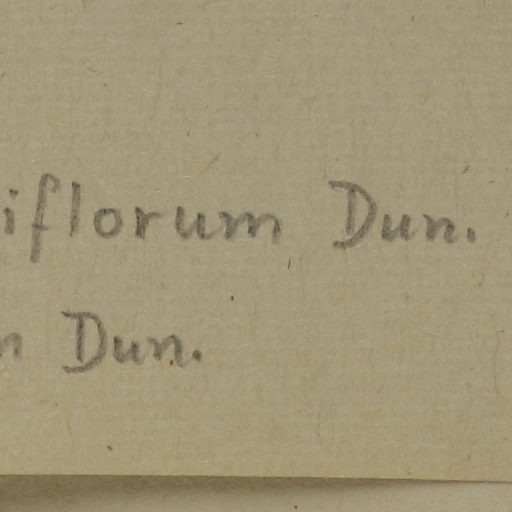 iflorum Dun.
n Dun.